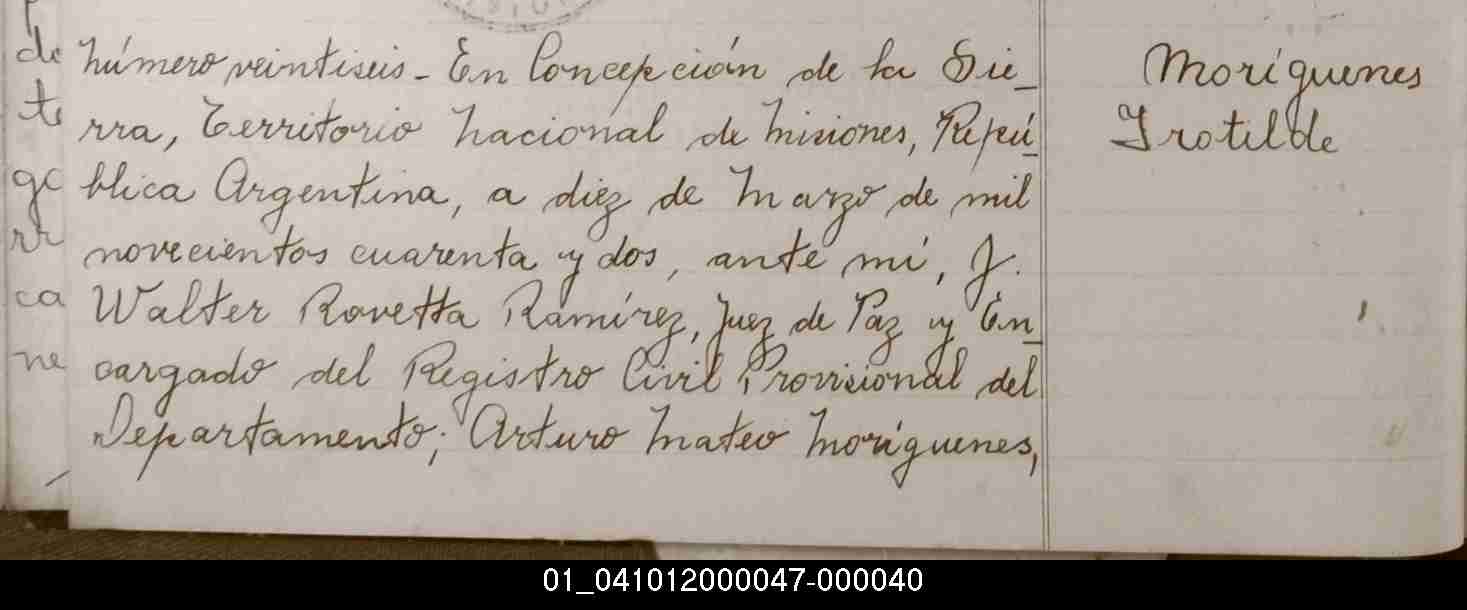 Número veintiseis - En Concepción de la Sie_
rra, Territorio Nacional de Misiones, Repú_
blica Argentina, a diez de Marzo de mil
novecientos cuarenta y dos, ante mí, J.
Walter Rovetta Ramírez, Juez de Paz y En_
cargado del Registro Civil Provisional del
Departamento; Arturo Mateo Moríguenes,
Moríguenes
Irotilde
de
te
ge
rr
ca
ne
01_041012000047-000040